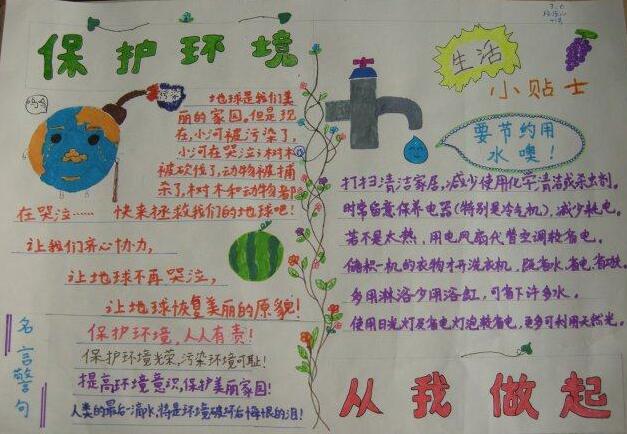 保护环境
地球是我们美
丽的家园。但是现
在,小河被污染了,
小河在哭泣;树木
被砍伐了,动物被捕
杀了,树木和动物都
在哭泣……快来拯救我们的地球吧!
让我们齐心协力,
让地球不再哭泣,
让地球恢复美丽的原貌!
名言警句
保护环境,人人有责!
保护环境光荣,污染环境可耻!
提高环境意识,保护美丽家园!
人类的最后一滴水,将是环境破坏后悔恨的泪!
生活
小贴士
要节约用
水噢!
打扫清洁家居,减少使用化学清洁或杀虫剂。
时常留意保养电器(特别是冷气机),减少耗电。
若不是太热,用电风扇代替空调较省电。
储积一机的衣物才开洗衣机,既省水,省电,省
多用淋浴少用浴缸,可省下许多水。
使用日光灯及省电灯泡较省电,更多可利用天然光。
从我做起